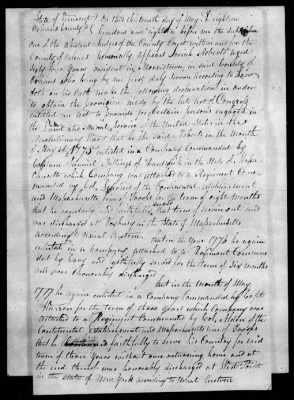 State of Vermont } On this thirteenth day of May Eighteen
County } hundred and eighteen before me the subscriber
one of the assistant Judges of the County Court within and for the
County of personally appears Josiah Roberts aged
eight four years resident in in said County of
who being by me first duly sworn according to Law
doth on his oath make the following declaration in order
to obtain the provision made by the late act of Congress
entitled an act to provide for certain persons engaged in
the Land and Naval Service of the United States in the
Revolutionary War that he the said Roberts in the month
of May AD 1775 enlisted in a Company Commanded by
Captain Samuel of in the State of Massa
chusetts which Company was attached to a Regiment Com
manded by Col. of the Continental establishment
and Massachusetts line of Troops for the term of eight months
that he regularly and faithfully that term of service out and
was discharged at Roxbury in the State of Massachusetts
according to usual Custom
that in the year 1776 he again
enlisted in a Company attached to a Regiment Comman
ded by Cary and faithfully served for the term of Six months
and was honorably discharged
that in the month of May
1777 he again enlisted in a Company Commanded by Capt
for the term of three years which Company was
attached to a Regiment Commanded by Col. of the
Continental Establishment and Massachusetts line of Troops
that he faithfully to serve his Country for said
term of three years without once returning home and at
the end thereof was honorably discharged at West Point
in the State of New York according to usual Custom